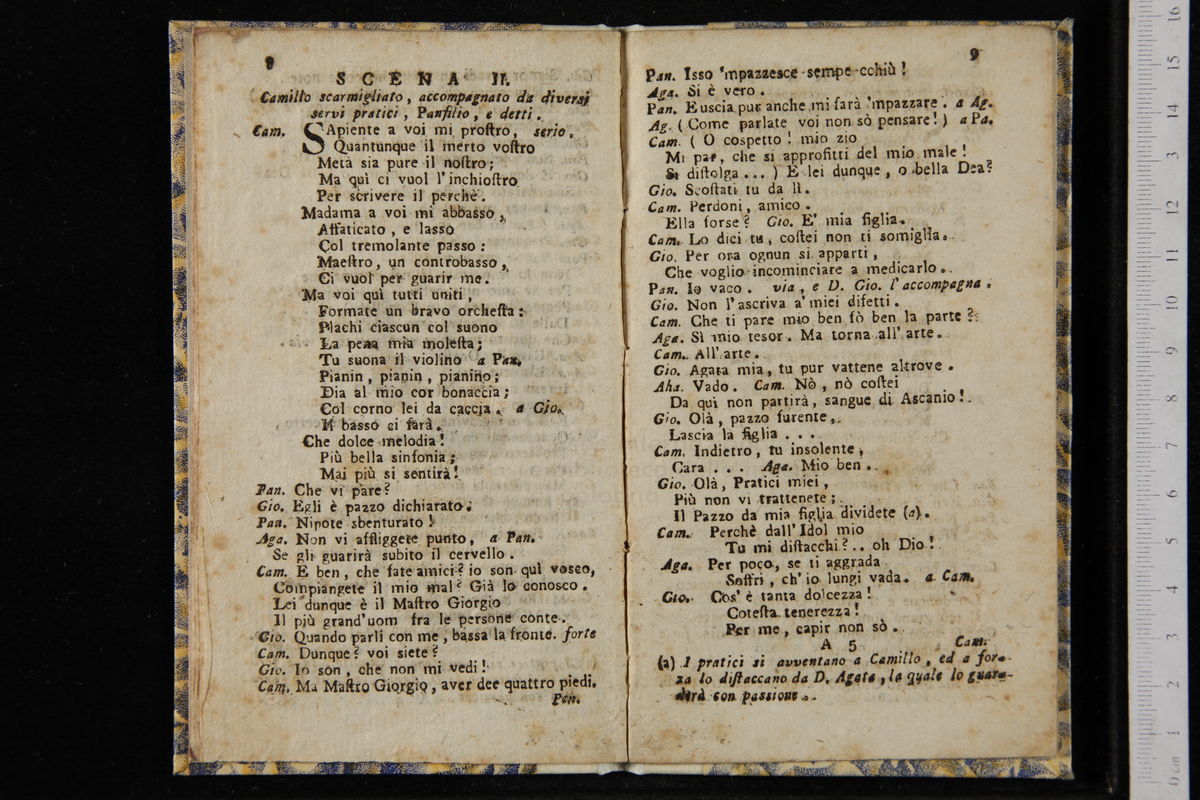 8
SCENA II.
Camillo scarmigliato, accompagnato da diversi
servi pratici, Panfilio, e detti.
Cam. SApiente a voi mi proſtro, serio.
Quantunque il merto voſtro
Metà sia pure il noſtro;
Ma quì ci vuol l'inchioſtro
Per scrivere il perchè.
Madama a voi mi abbasso,
Affaticato, e lasso
Col tremolante passo:
Maeſtro, un controbasso,
Ci vuol per guarir me.
Ma voi quì tutti uniti,
Formate un bravo orcheſta:
Plachi ciascun col suono
La pena mia moleſta;
Tu suona il violino a Pan.
Pianin, pianin, pianino;
Dia al mio cor bonaccia;
Col corno lei da caccia. a Gio.
Il basso ci farà.
Che dolce melodia!
Più bella sinfonia;
Mai più si sentirà!
Pan. Che vi pare?
Gio. Egli è pazzo dichiarato.
Pan. Nipote sbenturato!
Aga. Non vi affliggete punto, a Pan.
Se gli guarirà subito il cervello.
Cam. E ben, che fate amici? io son quì vosco,
Compiangete il mio mal? Già lo conosco.
Lei dunque è il Maſtro Giorgio
Il più grand'uom fra le persone conte.
Gio. Quando parli con me, bassa la fronte. forte
Cam. Dunque? voi siete?
Gio. Io son, che non mi vedi!
Cam. Ma Maſtro Giorgio, aver dee quattro piedi.
Pan.
9
Pan. Isso 'mpazzesce sempe cchiù!
Aga. Si è vero.
Pan. Euscia pur anche mi farà 'mpazzare. a Ag.
Ag. (Come parlate voi non sò pensare!) a Pa.
Cam. (O cospetto! mio zio
Mi par, che si approfitti del mio male!
Si diſtolga...) E lei dunque, o bella Dea?
Gio. Scoſtati tu da lì.
Cam. Perdoni, amico.
Ella forse? Gio. E' mia figlia.
Cam. Lo dici tu, coſtei non ti somiglia.
Gio. Per ora ognun si apparti,
Che voglio incominciare a medicarlo.
Pan. Io vaco. via, e D. Gio. l'accompagna.
Gio. Non l'ascriva a' miei difetti.
Cam. Che ti pare mio ben fò ben la parte?
Aga. Sì mio tesor. Ma torna all'arte.
Cam. All'arte.
Gio. Agata mia, tu pur vattene altrove.
Aha. Vado. Cam. Nò, nò coſtei
Da quì non partirà, sangue di Ascanio!
Gio. Olà, pazzo furente,
Lascia la figlia...
Cam. Indietro, tu insolente,
Cara... Aga. Mio ben.
Gio. Olà, Pratici miei,
Più non vi trattenete;
Il Pazzo da mia figlia dividete (a).
Cam. Perchè dall'Idol mio
Tu mi diſtacchi?.. oh Dio!
Aga. Per poco, se ti aggrada
Soffri, ch'io lungi vada. a Cam.
Gio. Cos' è tanta dolcezza!
Coteſta tenerezza!
Per me, capir non sò.
A 5 Cam.
(a) I pratici si avventano a Camillo, ed a for-
za lo diſtaccano da D. Agata, la quale lo guar-
derà con passione.